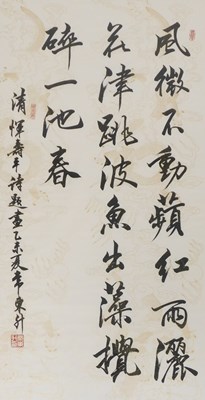 風微不動蘋紅雨灑
花津跳波魚出藻攪
碎一池春
清惲壽平詩題畫乙未夏常東升